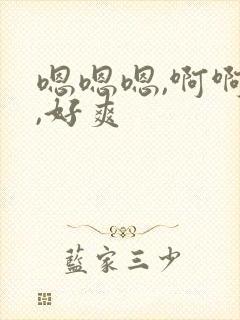 嗯嗯嗯,啊啊
,好爽
藍家三少